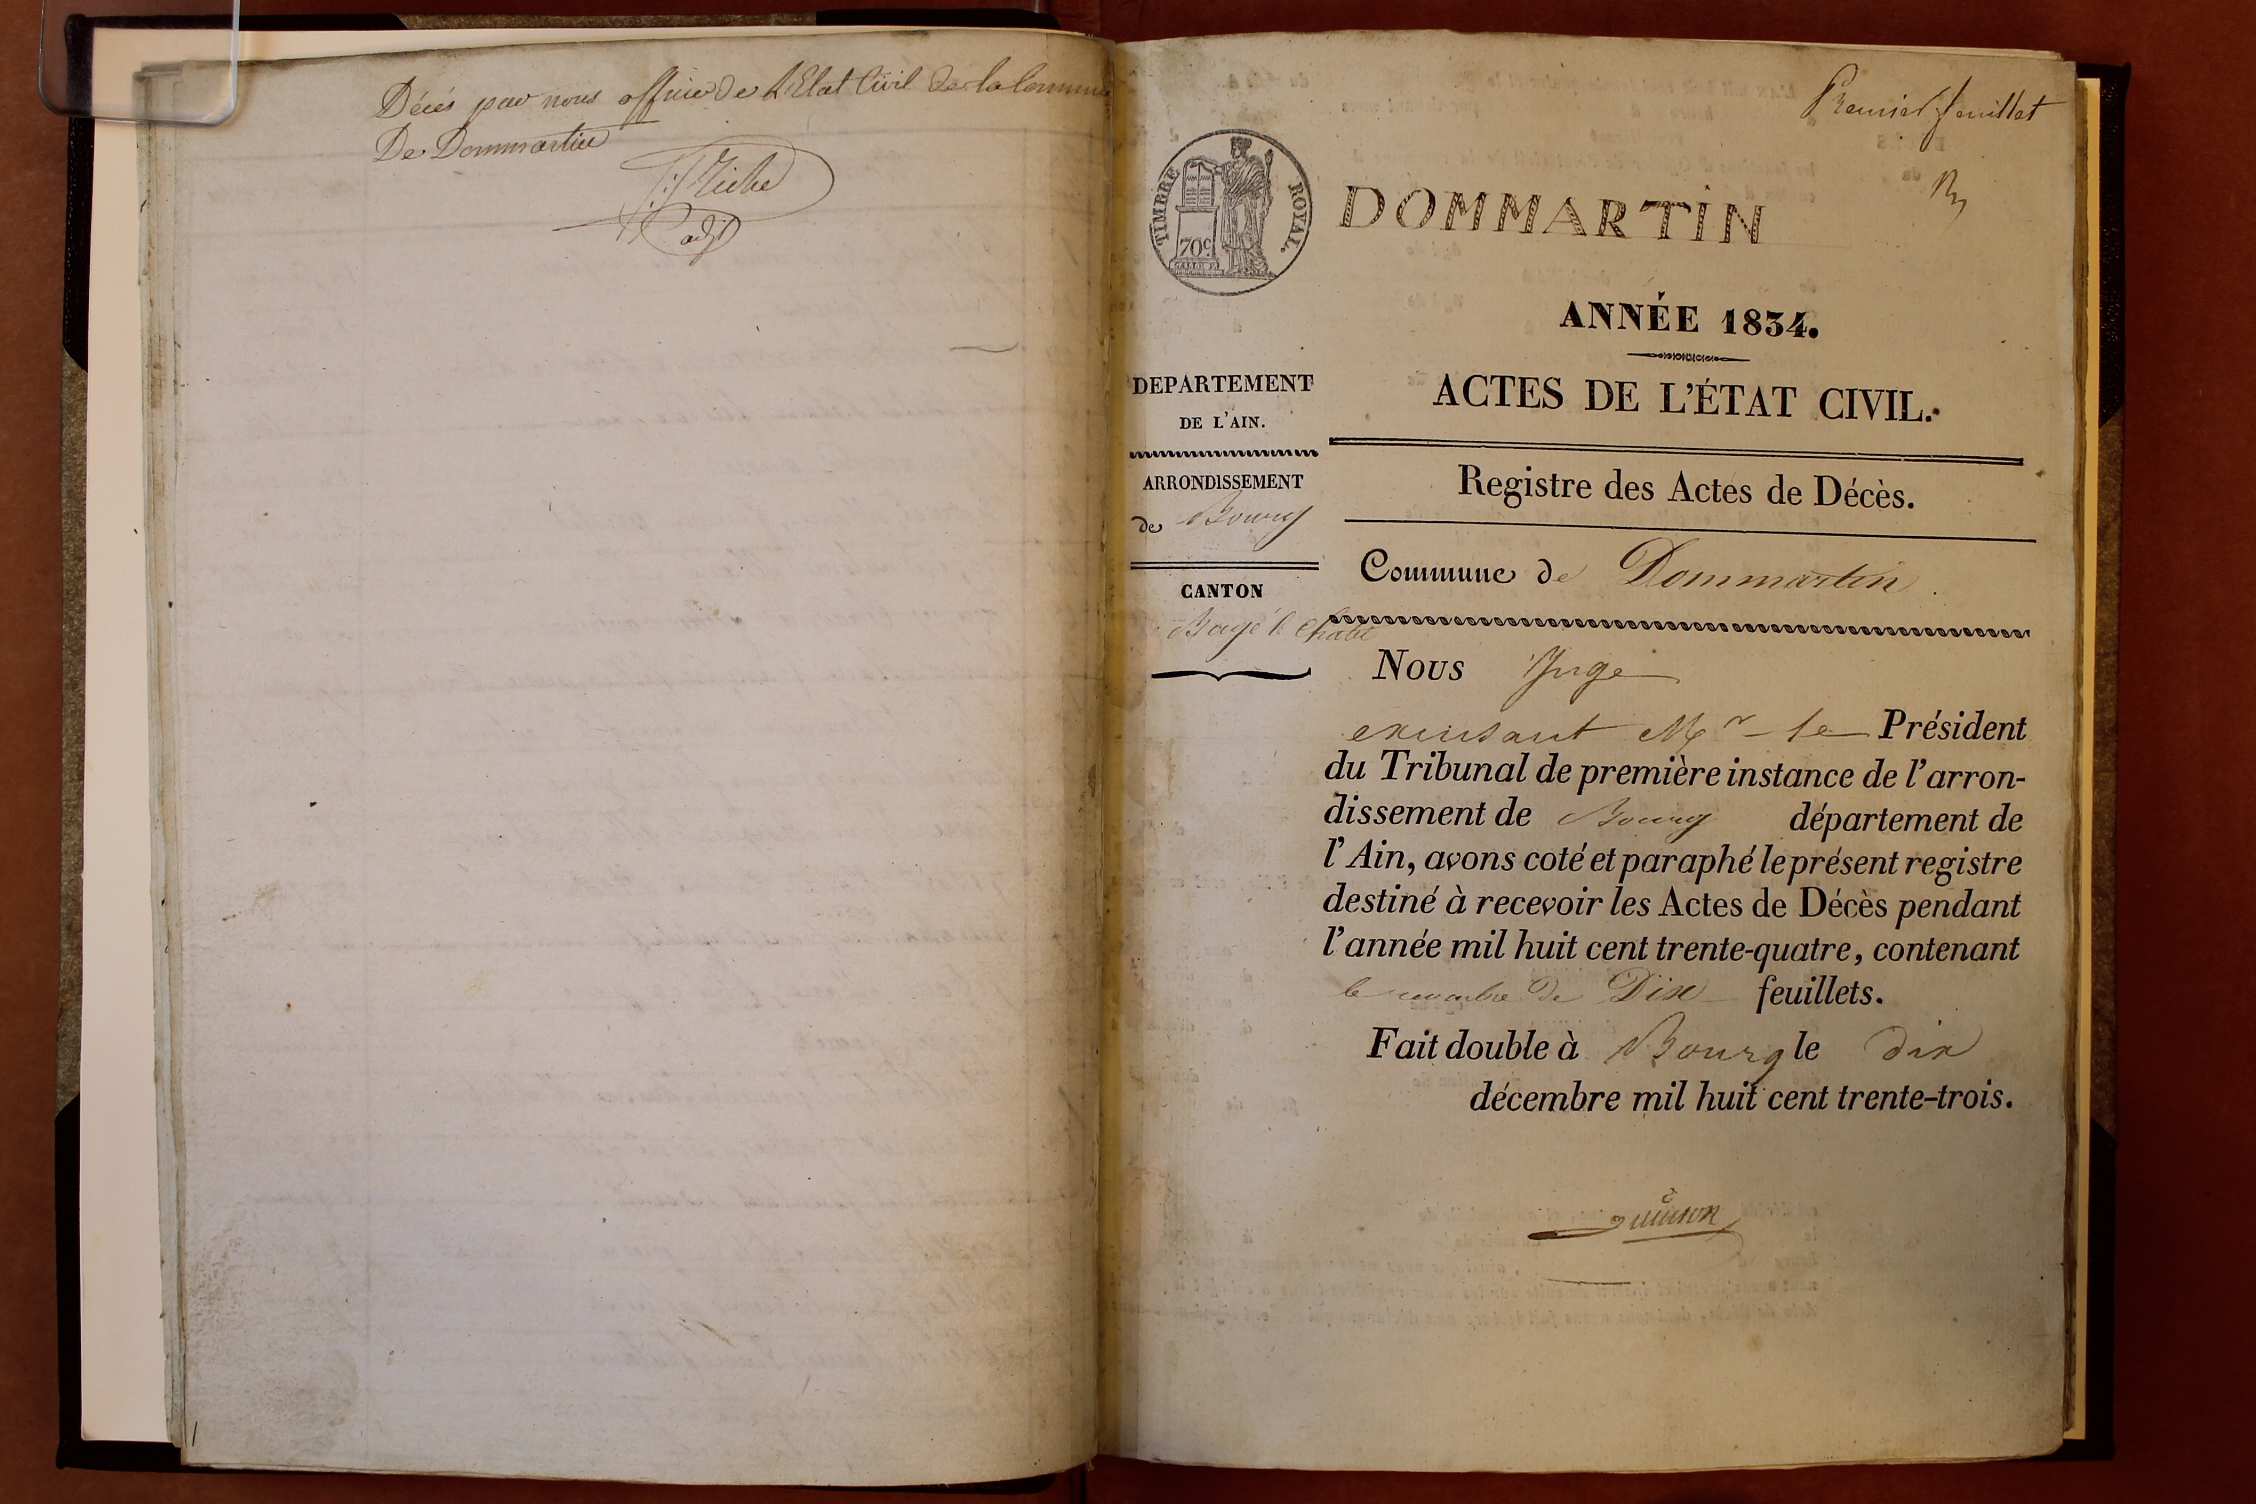 Décés par nous officier de L'Etat Civil de la Commune
De Dommartin
Riche
adjt
Premier feuillet
TIMBRE ROYAL.
70c
DOMMARTIN
ANNÉE 1834.
ACTES DE L'ÉTAT CIVIL.
Registre des Actes de Décès.
Commune de Dommartin
DEPARTEMENT
DE L'AIN.
ARRONDISSEMENT
de Bourg
CANTON
Bagé le Chatel
Nous Juge
exerçant Mr le Président
du Tribunal de première instance de l'arron-
dissement de Bourg département de
l'Ain, avons coté et paraphé le présent registre
destiné à recevoir les Actes de Décès pendant
l'année mil huit cent trente-quatre, contenant
le nombre de Dix feuillets.
Fait double à Bourg le dix
décembre mil huit cent trente-trois.
Quinson